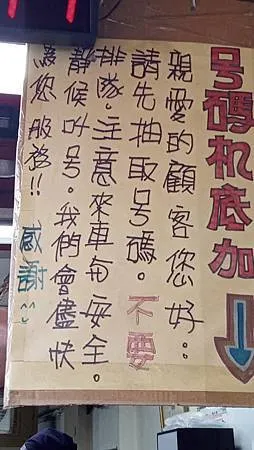 号碼机底加
親愛的顧客您好：
請先抽取号碼。不要
排隊。主意來車每安全。
靜候叫号。我們會儘快
為您服務!! 感謝